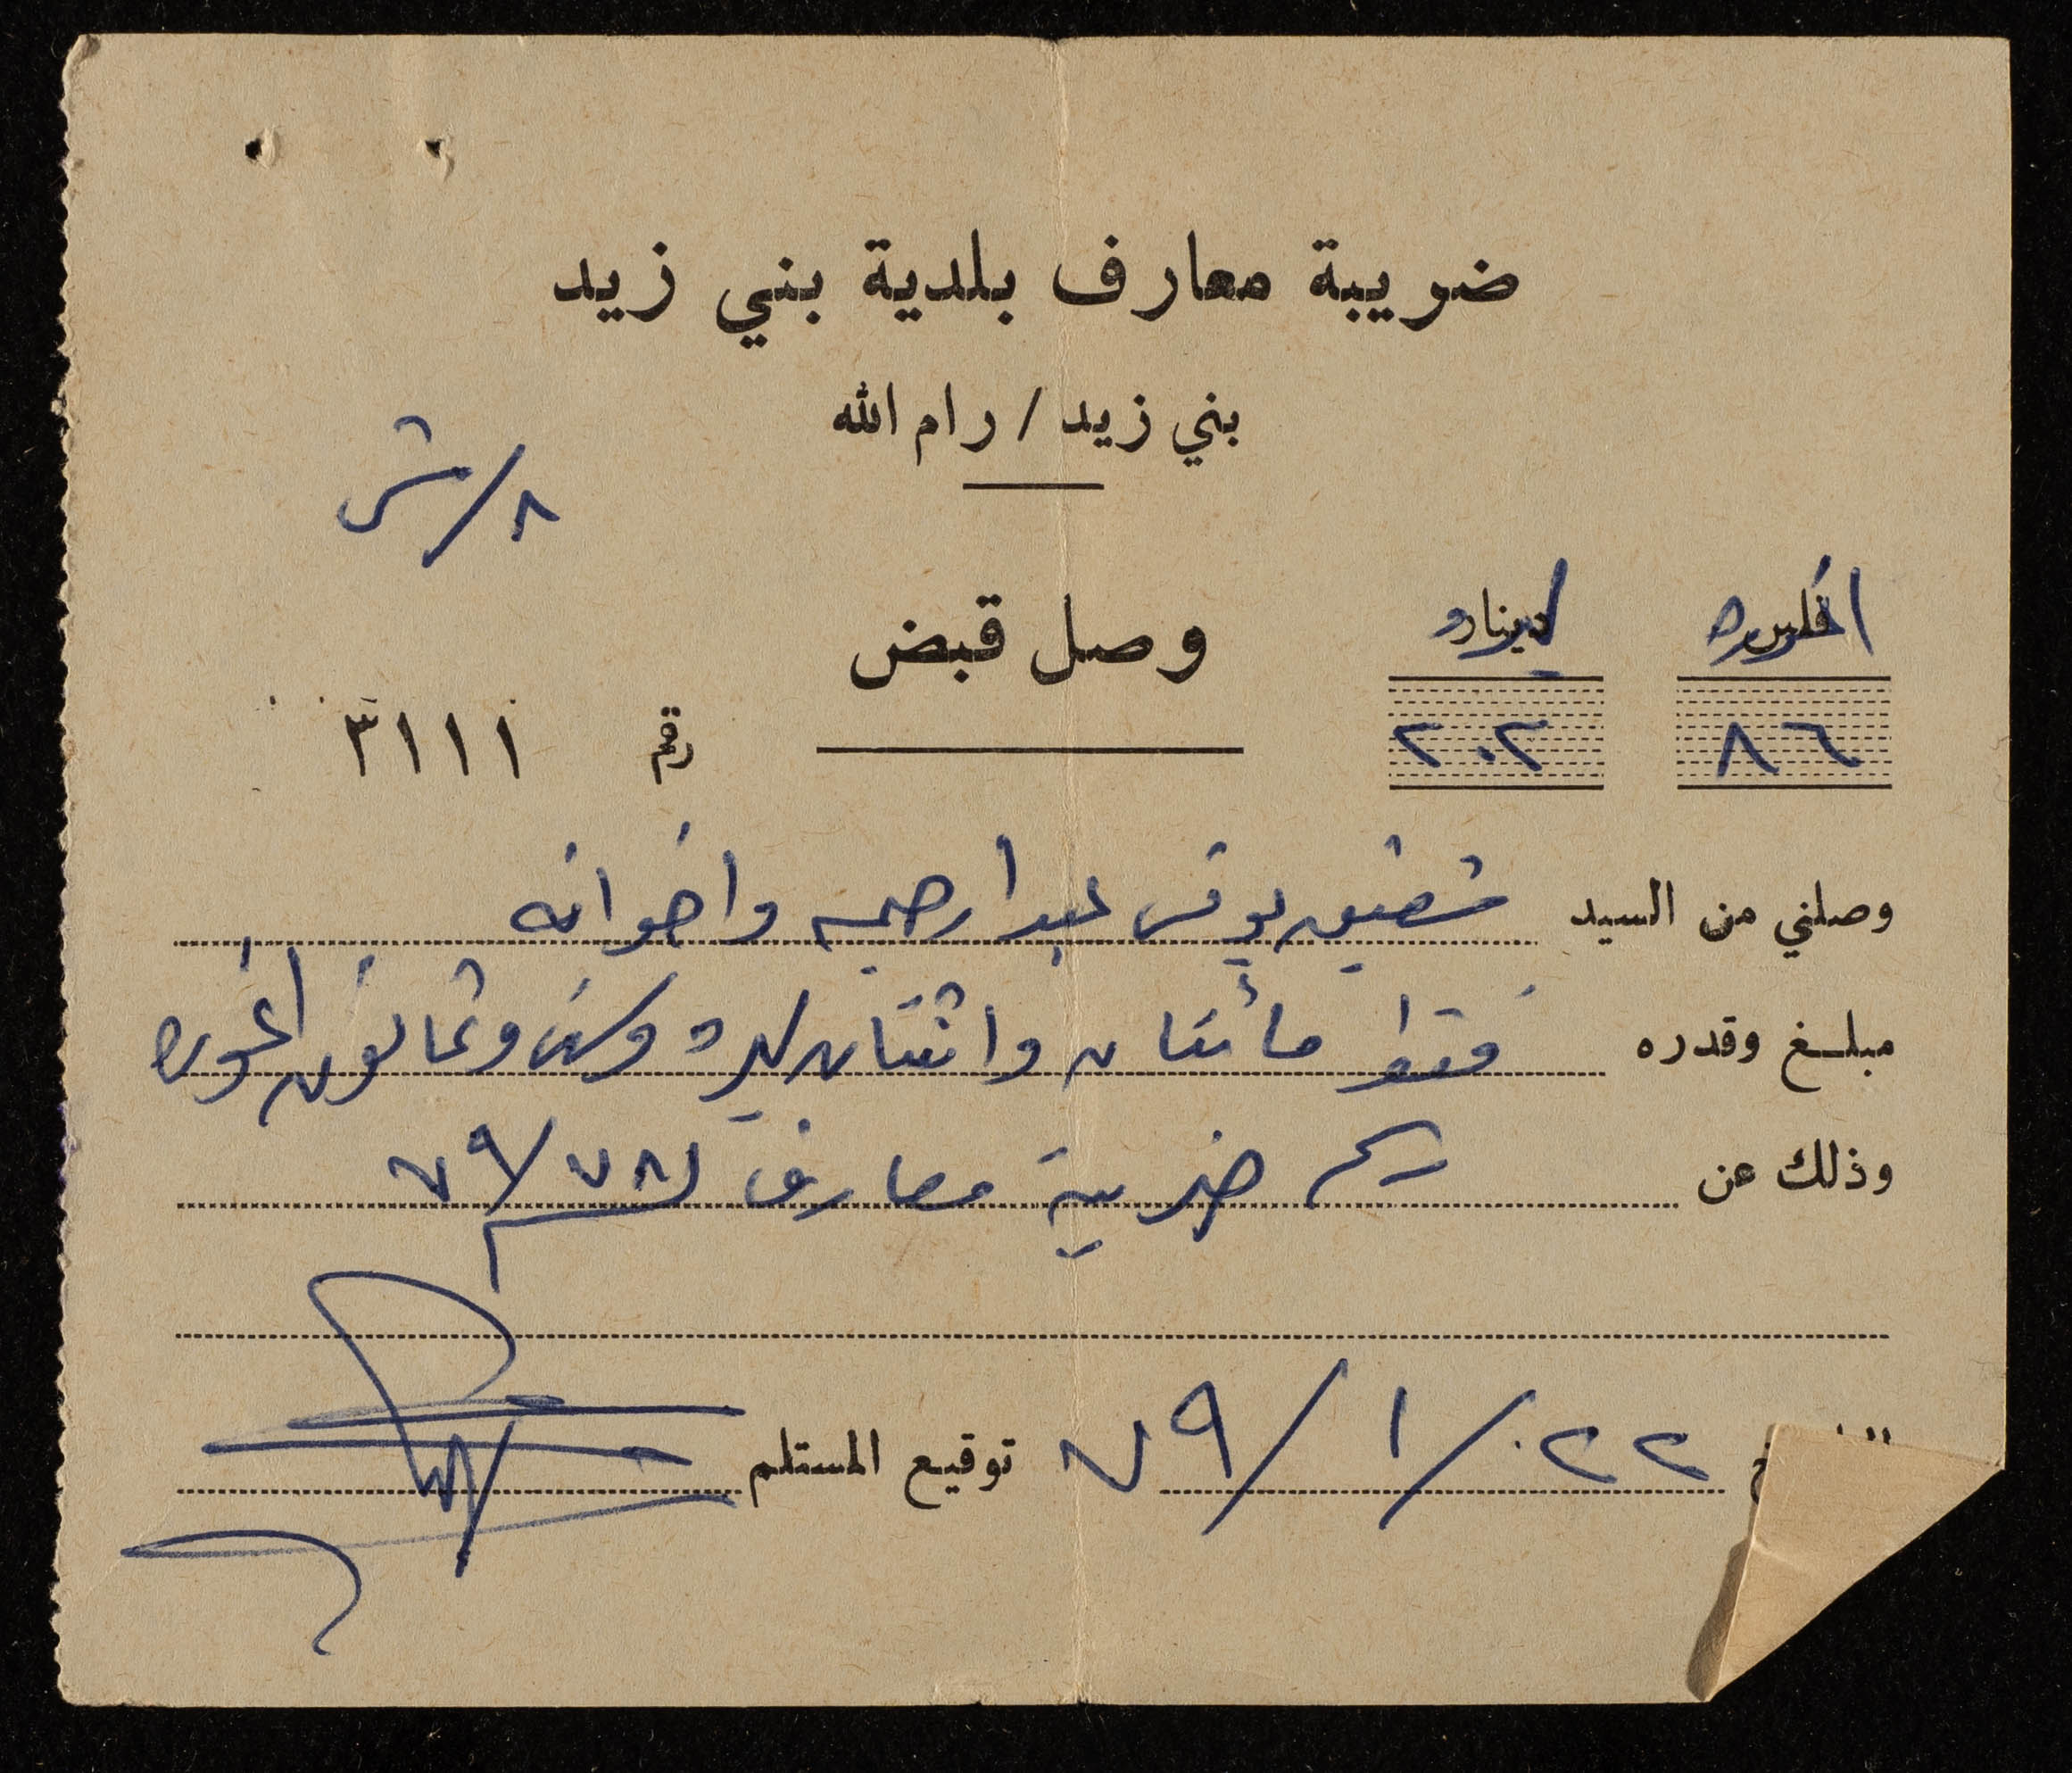 ضريبة معارف بلدية بني زيد
بني زيد / رام الله
٨/ش
اغوره ليره
وصل قبض
٨٦ ٢٠٢
رقم ٣١١١
وصلني من السيد شفيق يونس عبدا رحيم واخوانه
مبلغ وقدره فقط مائتان واثنتان ليره وست وثمانون اغوره
وذلك عن رسم ضريبة معارف ٧٩/٧٨
٧٩/١/٢٢ توقيع المستلم